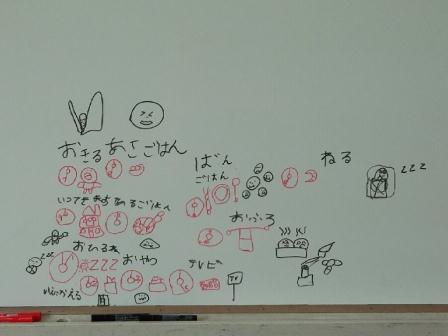 おきる あさごはん
いってきます ひるごはん
おひるね
おやつ
いえにかえる
ばん
ごはん
おふろ
テレビ
TV
ねる
zzz
zzz
ZZZ